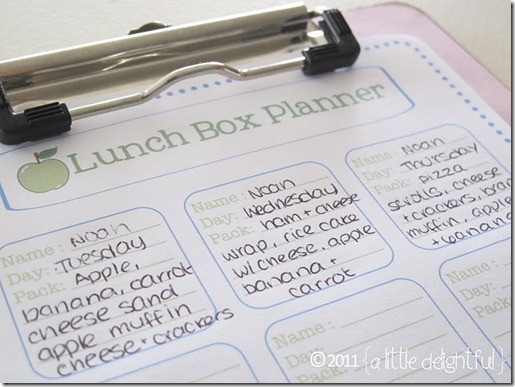 Lunch Box Planner
Name: Noah
Day: Tuesday
Pack: Apple,
banana, carrot
cheese sand
apple muffin
cheese + crackers
Name: Noah
Day: Wednesday
Pack: ham + cheese
wrap, rice cake
w/ cheese, apple
banana +
carrot
Name: Noah
Day: Thursday
Pack: pizza
scrolls, cheese
+ crackers, bran
muffin, apple
+ banana
Name:
Day:
Pack:
Name:
Day:
Name:
© 2011 {a little delightful}